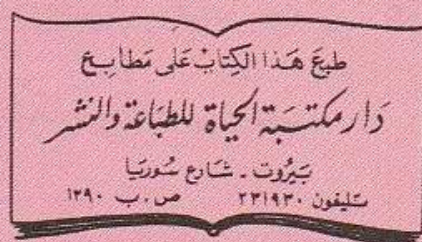 طبعَ هَذا الكِتابْ عَلى مَطابِع
دَار مكتبَة الحيَاة للطبَاعَة والنشر
بَيروت . شارع سُوريَا
تليفون ٢٣١٩٣٠ ص . ب ١٣٩٠